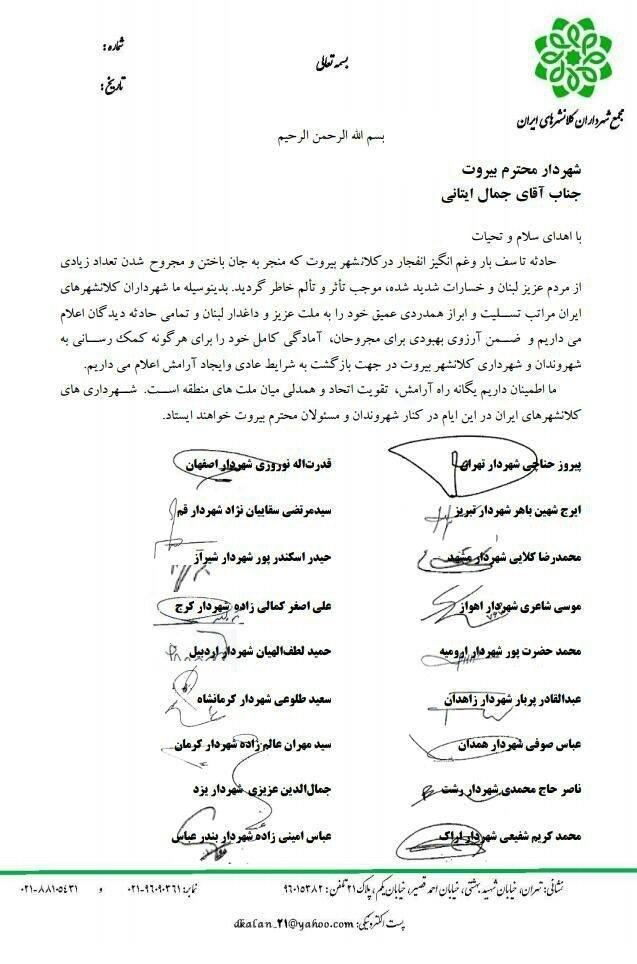 شماره :
بسمه تعالی
تاریخ :
مجمع شهرداران کلانشهرهای ایران
بسم الله الرحمن الرحیم
شهردار محترم بیروت
جناب آقای جمال ایتانی
با اهدای سلام و تحیات
حادثه تاسف بار وغم انگیز انفجار درکلانشهر بیروت که منجر به جان باختن و مجروح شدن تعداد زیادی
از مردم عزیز لبنان و خسارات شدید شده، موجب تأثر و تألم خاطر گردید. بدینوسیله ما شهرداران کلانشهرهای
ایران مراتب تسلیت و ابراز همدردی عمیق خود را به ملت عزیز و داغدار لبنان و تمامی حادثه دیدگان اعلام
می داریم و ضمن آرزوی بهبودی برای مجروحان، آمادگی کامل خود را برای هرگونه کمک رسانی به
شهروندان و شهرداری کلانشهر بیروت در جهت بازگشت به شرایط عادی وایجاد آرامش اعلام می داریم.
ما اطمینان داریم یگانه راه آرامش، تقویت اتحاد و همدلی میان ملت های منطقه است. شهرداری های
کلانشهرهای ایران در این ایام در کنار شهروندان و مسئولان محترم بیروت خواهند ایستاد.
پیروز حناچی شهردار تهران
قدرت‌اله نوروزی شهردار اصفهان
ایرج شهین باهر شهردار تبریز
سیدمرتضی سقاییان نژاد شهردار قم
محمدرضا کلایی شهردار مشهد
حیدر اسکندر پور شهردار شیراز
موسی شاعری شهردار اهواز
علی اصغر کمالی زاده شهردار کرج
محمد حضرت پور شهردار ارومیه
حمید لطف‌الهیان شهردار اردبیل
عبدالقادر پربار شهردار زاهدان
سعید طلوعی شهردار کرمانشاه
عباس صوفی شهردار همدان
سید مهران عالم زاده شهردار کرمان
ناصر حاج محمدی شهردار رشت
جمال‌الدین عزیزی شهردار یزد
محمد کریم شفیعی شهردار اراک
عباس امینی زاده شهردار بندر عباس
نشانی: تهران، خیابان شهید بهشتی، خیابان احمد قصیر، خیابان یکم، پلاک ۲۱ تلفن : ۹۶۰۱۵۳۸۲ نمابر: ۹۶۰۹۰۳۶۱-۰۲۱ و ۸۸۱۰۵۴۳۱-۰۲۱
پست الکترونیکی: dkalan_21@yahoo.com